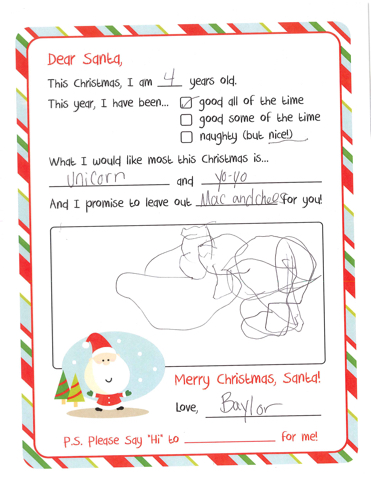 Dear Santa,
This Christmas, I am 4 years old.
This year, I have been... good all of the time
good some of the time
naughty (but nice!)
What I would like most this Christmas is...
Unicorn and yo-yo
And I promise to leave out Mac and cheese for you!
Merry Christmas, Santa!
Love, Baylor
P.S. Please Say "Hi" to ____________ for me!